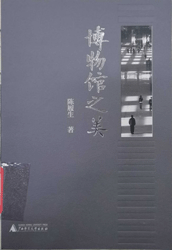 博物馆之美
陈履生 著
广西师范大学出版社